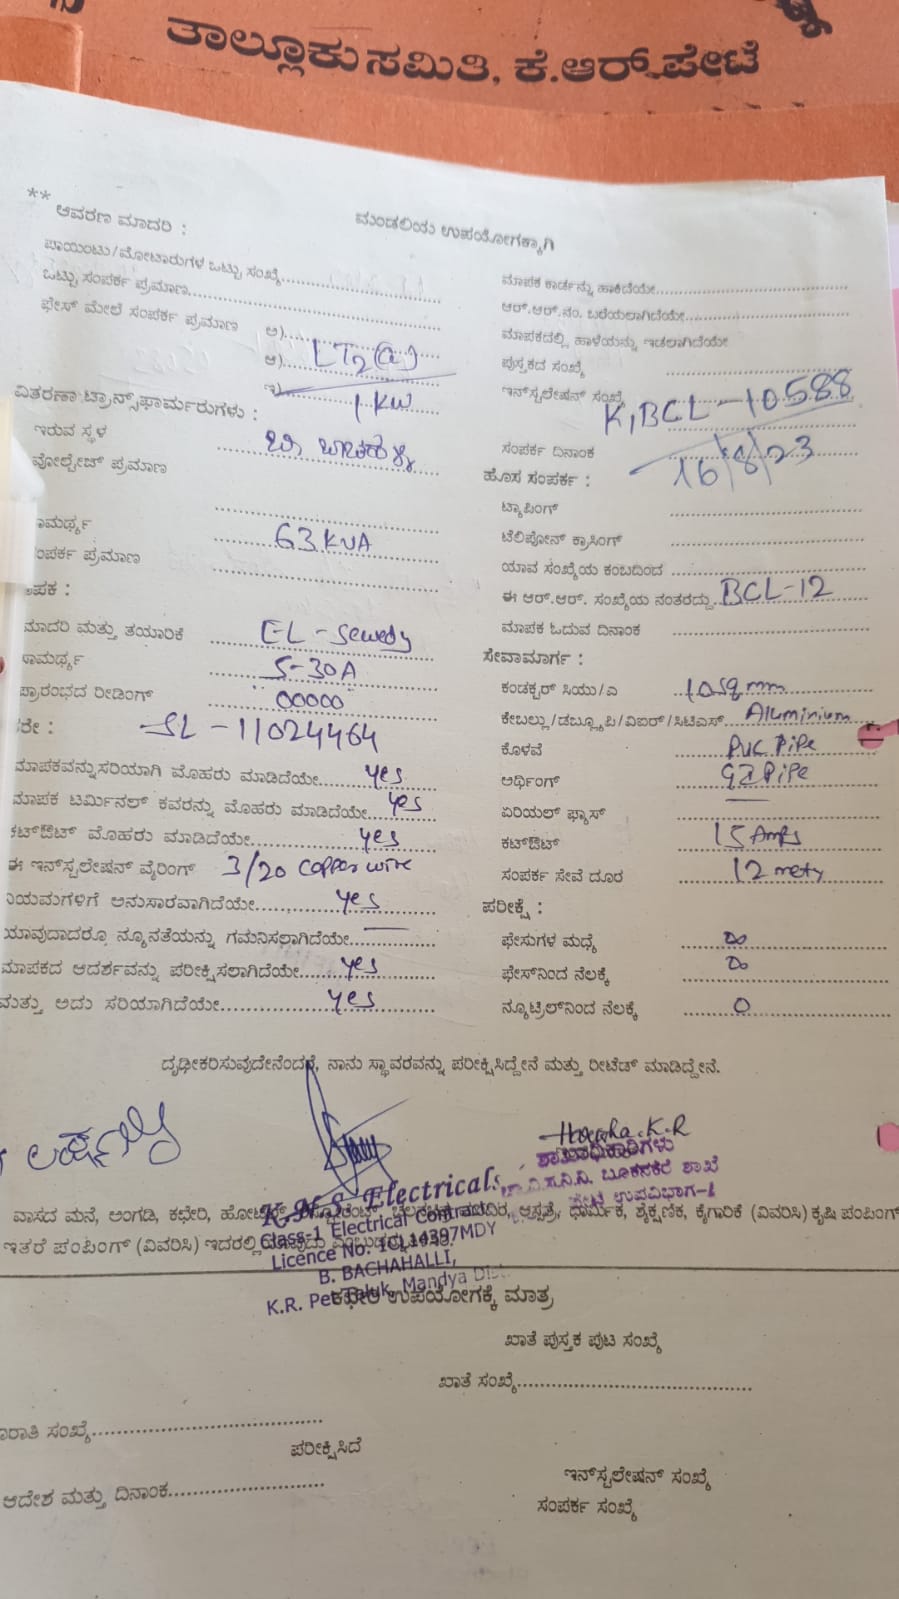 ತಾಲ್ಲೂಕು ಸಮಿತಿ, ಕೆ.ಆರ್.ಪೇಟೆ
** ಆವರಣ ಮಾದರಿ :
ಮಂಡಲಿಯ ಉಪಯೋಗಕ್ಕಾಗಿ
ಪಾಯಿಂಟು/ಮೋಟಾರುಗಳ ಒಟ್ಟು ಸಂಖ್ಯೆ
ಒಟ್ಟು ಸಂಪರ್ಕ ಪ್ರಮಾಣ
ಫೇಸ್ ಮೇಲೆ ಸಂಪರ್ಕ ಪ್ರಮಾಣ ಅ)
ಆ) LT2(a)
ಇ) 1 KW
ವಿತರಣಾ ಟ್ರಾನ್ಸ್‌ಫಾರ್ಮರುಗಳು :
ಇರುವ ಸ್ಥಳ
ವೋಲ್ಟೇಜ್ ಪ್ರಮಾಣ
ಾಮರ್ಥ್ಯ 63 KVA
ಂಪರ್ಕ ಪ್ರಮಾಣ
ಾಪಕ :
ಮಾದರಿ ಮತ್ತು ತಯಾರಿಕೆ EL - Sewedy
ಾಮರ್ಥ್ಯ 5-30A
ಪ್ರಾರಂಭದ ರೀಡಿಂಗ್ 00000
ತರೇ : SL - 11024464
ಮಾಪಕವನ್ನು ಸರಿಯಾಗಿ ಮೊಹರು ಮಾಡಿದೆಯೇ yes
ಮಾಪಕ ಟರ್ಮಿನಲ್ ಕವರನ್ನು ಮೊಹರು ಮಾಡಿದೆಯೇ yes
ಕಟ್‌ಔಟ್ ಮೊಹರು ಮಾಡಿದೆಯೇ yes
ಈ ಇನ್‌ಸ್ಟಲೇಷನ್ ವೈರಿಂಗ್ 3/20 copper wire
ನಿಯಮಗಳಿಗೆ ಅನುಸಾರವಾಗಿದೆಯೇ yes
ಯಾವುದಾದರೂ ನ್ಯೂನತೆಯನ್ನು ಗಮನಿಸಲಾಗಿದೆಯೇ
ಮಾಪಕದ ಆದರ್ಶವನ್ನು ಪರೀಕ್ಷಿಸಲಾಗಿದೆಯೇ yes
ಮತ್ತು ಅದು ಸರಿಯಾಗಿದೆಯೇ yes
ಮಾಪಕ ಕಾರ್ಡನ್ನು ಹಾಕಿದೆಯೇ
ಆರ್.ಆರ್.ನಂ. ಬರೆಯಲಾಗಿದೆಯೇ
ಮಾಪಕದಲ್ಲಿ ಹಾಳೆಯನ್ನು ಇಡಲಾಗಿದೆಯೇ
ಪುಸ್ತಕದ ಸಂಖ್ಯೆ
ಇನ್‌ಸ್ಟಲೇಷನ್ ಸಂಖ್ಯೆ K,BCL-10588
ಸಂಪರ್ಕ ದಿನಾಂಕ 16/8/23
ಹೊಸ ಸಂಪರ್ಕ :
ಟ್ಯಾಪಿಂಗ್
ಟೆಲಿಫೋನ್ ಕ್ರಾಸಿಂಗ್
ಯಾವ ಸಂಖ್ಯೆಯ ಕಂಬದಿಂದ
ಈ ಆರ್.ಆರ್. ಸಂಖ್ಯೆಯ ನಂತರದ್ದು BCL-12
ಮಾಪಕ ಓದುವ ದಿನಾಂಕ
ಸೇವಾಮಾರ್ಗ :
ಕಂಡಕ್ಟರ್ ಸಿಯು/ಎ 10 sq mm
ಕೇಬಲ್ಲು/ಡಬ್ಲ್ಯೂ ಪಿ/ವಿಐಆರ್/ಸಿಟಿಎಸ್ Aluminium
ಕೊಳವೆ PVC PiPe
ಅರ್ಥಿಂಗ್ GI PiPe
ಏರಿಯಲ್ ಫ್ಯೂಸ್
ಕಟ್‌ಔಟ್ 15 Amps
ಸಂಪರ್ಕ ಸೇವೆ ದೂರ 12 metr
ಪರೀಕ್ಷೆ :
ಫೇಸುಗಳ ಮಧ್ಯೆ ∞
ಫೇಸ್‌ನಿಂದ ನೆಲಕ್ಕೆ ∞
ನ್ಯೂಟ್ರಲ್‌ನಿಂದ ನೆಲಕ್ಕೆ 0
ದೃಢೀಕರಿಸುವುದೇನೆಂದರೆ, ನಾನು ಸ್ಥಾವರವನ್ನು ಪರೀಕ್ಷಿಸಿದ್ದೇನೆ ಮತ್ತು ರೀಟೆಡ್ ಮಾಡಿದ್ದೇನೆ.
Harsha.K.R
ಶಾಖಾಧಿಕಾರಿಗಳು
ಬೂಕನಕೆರೆ ಶಾಖೆ
ಉಪವಿಭಾಗ-1
K.N.S. Electricals
Class-1 Electrical Contractor
Licence No. 1CL14397MDY
B. BACHAHALLI,
K.R. Pet Taluk, Mandya Dist.
ವಾಸದ ಮನೆ, ಅಂಗಡಿ, ಕಛೇರಿ, ಹೋಟೆಲ್, ಆಸ್ಪತ್ರೆ, ಧಾರ್ಮಿಕ, ಶೈಕ್ಷಣಿಕ, ಕೈಗಾರಿಕೆ (ವಿವರಿಸಿ) ಕೃಷಿ ಪಂಪಿಂಗ್
ಇತರೆ ಪಂಪಿಂಗ್ (ವಿವರಿಸಿ) ಇದರಲ್ಲಿ
ಕಛೇರಿ ಉಪಯೋಗಕ್ಕೆ ಮಾತ್ರ
ಖಾತೆ ಪುಸ್ತಕ ಪುಟ ಸಂಖ್ಯೆ
ಖಾತೆ ಸಂಖ್ಯೆ
ಾರಾತಿ ಸಂಖ್ಯೆ
ಪರೀಕ್ಷಿಸಿದೆ
ಆದೇಶ ಮತ್ತು ದಿನಾಂಕ
ಇನ್‌ಸ್ಟಲೇಷನ್ ಸಂಖ್ಯೆ
ಸಂಪರ್ಕ ಸಂಖ್ಯೆ